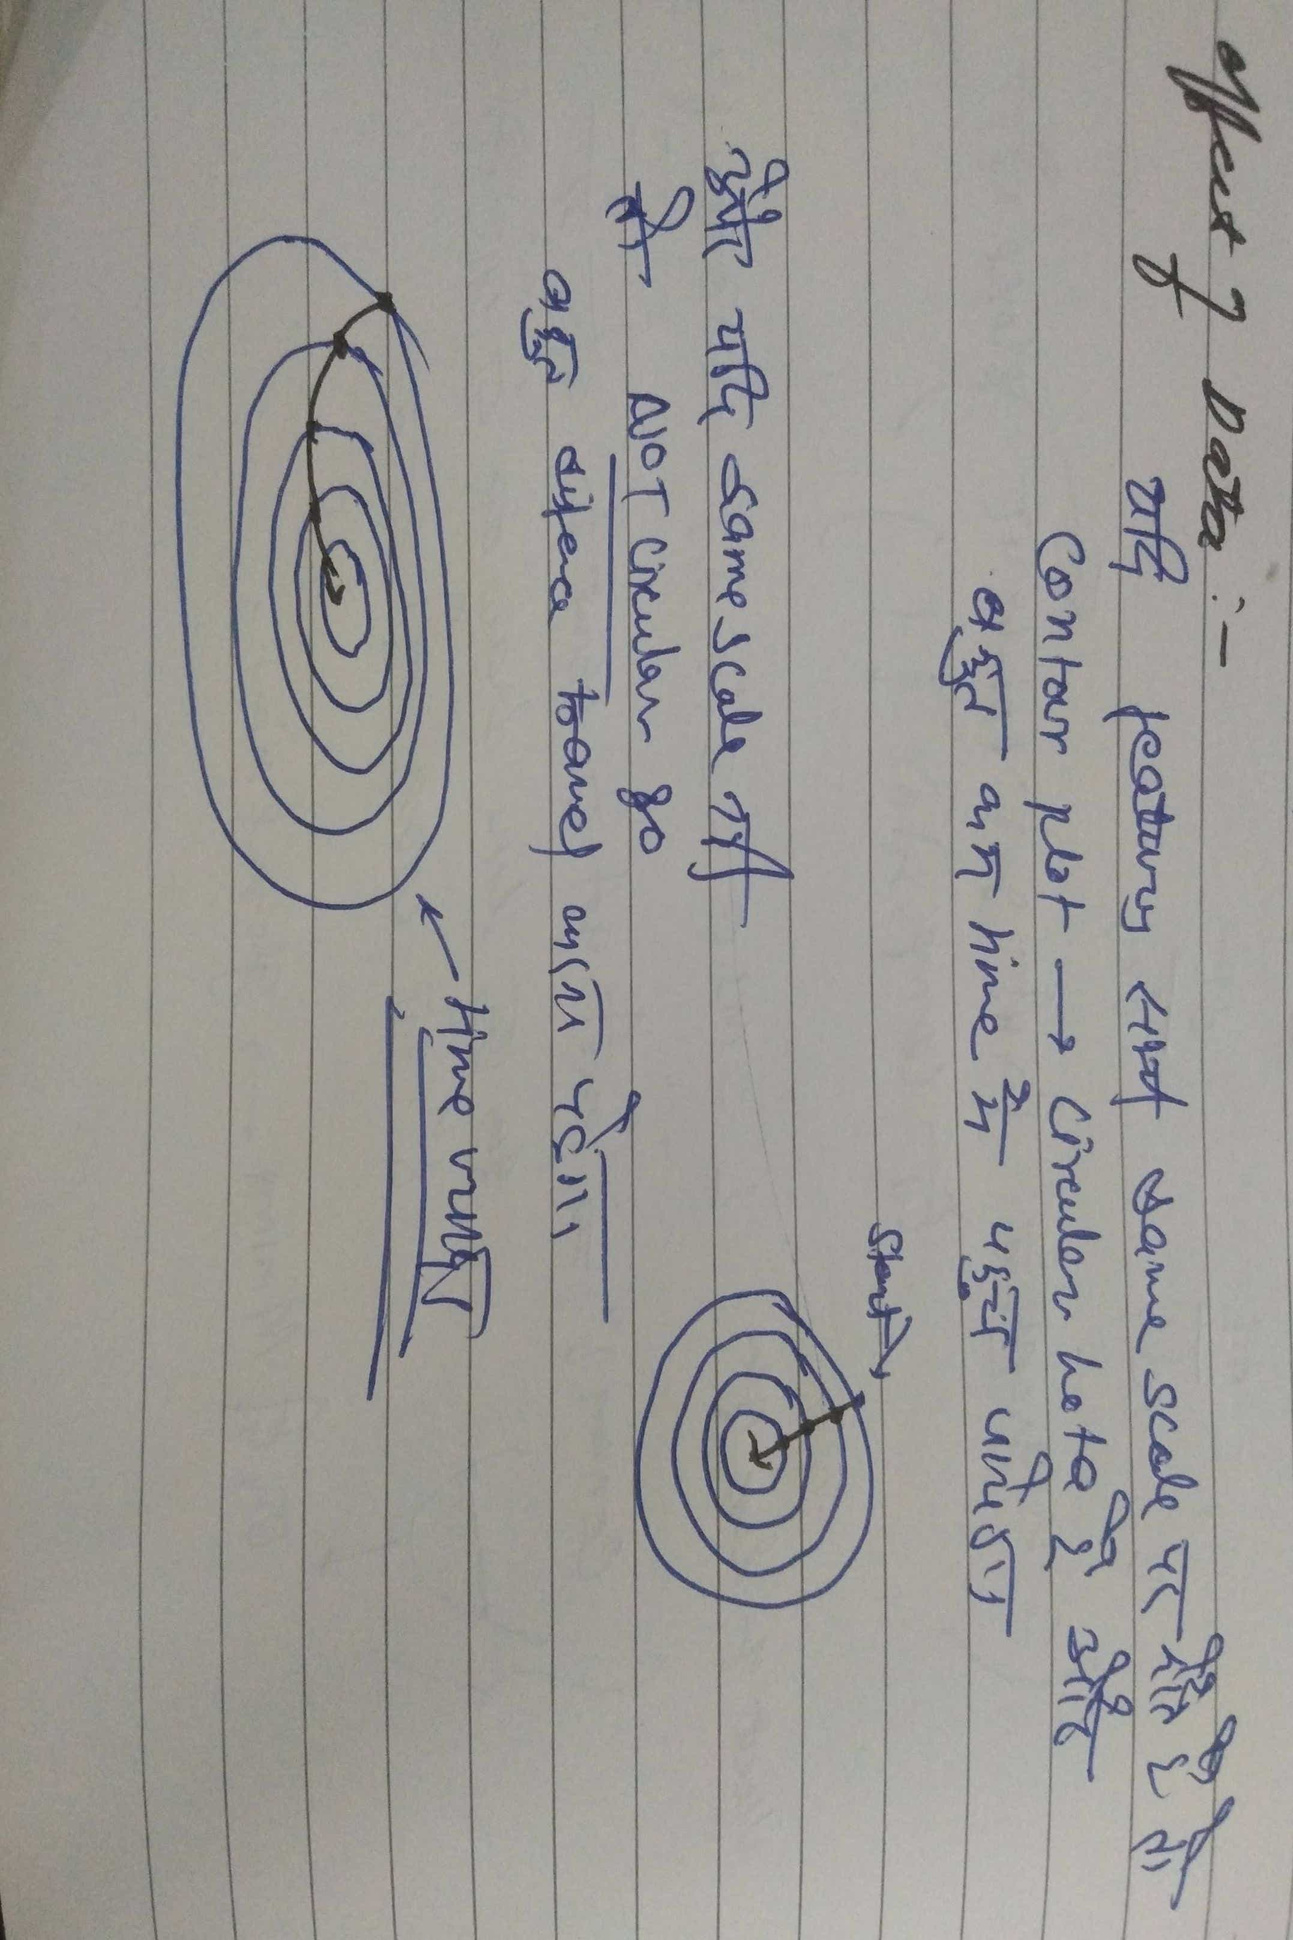 Effect of Data :-
यदि features सभी same scale पर होते है तो
Contour plot → Circular hota है और
बहुत कम time में पहुंच पायेगा
Start
और यदि same scale नहीं
तो NOT Circular go
बहुत distance travel करना पड़ेगा।
time ज्यादा